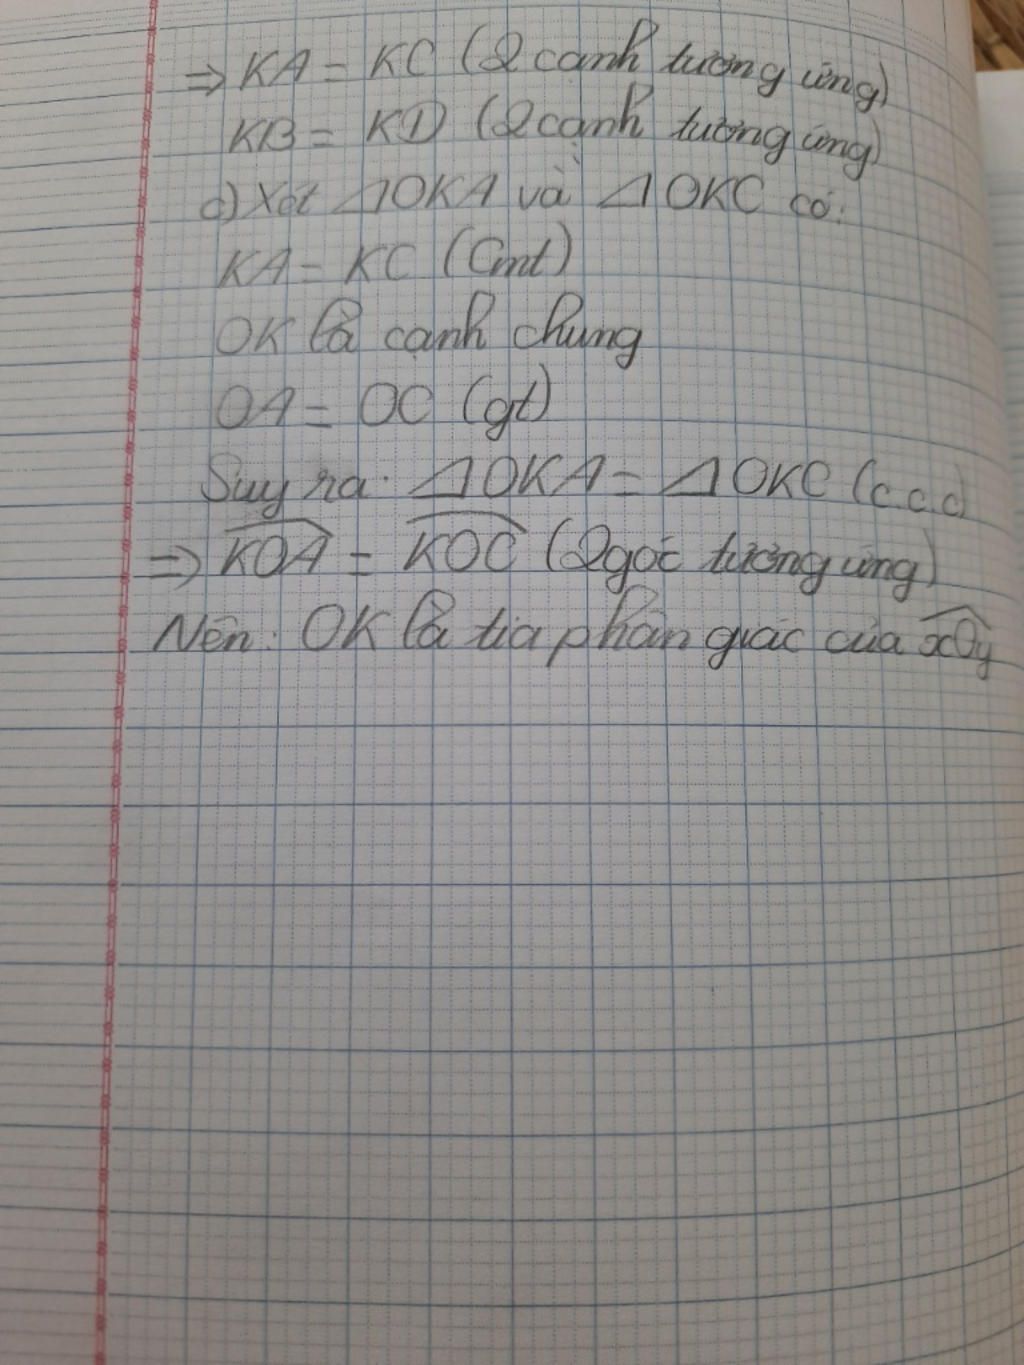 => KA = KC (2 cạnh tương ứng)
KB = KD (2 cạnh tương ứng)
c) Xét ΔOKA và ΔOKC có:
KA = KC (Cmt)
OK là cạnh chung
OA = OC (gt)
Suy ra: ΔOKA = ΔOKC (c.c.c)
=> \widehat{KOA} = \widehat{KOC} (2 góc tương ứng)
Nên: OK là tia phân giác của \widehat{xOy}